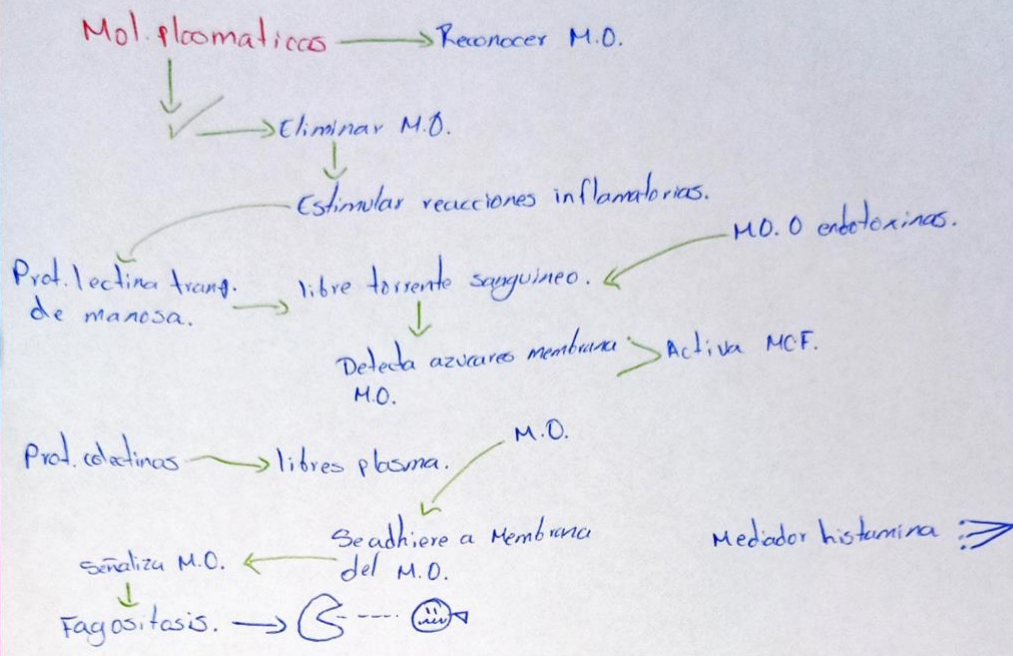 Mol. plasmaticas → Reconocer M.O.
Eliminar M.O.
Estimular reacciones inflamatorias.
M.O. O endotoxinas.
Prot. lectina trans.
de manosa.
libre torrente sanguineo.
Detecta azucares membrana
M.O.
Activa MCF.
M.O.
Prot. colectinas → libres plasma.
Se adhiere a Membrana
del M.O.
Señaliza M.O.
Mediador histamina
Fagositosis.